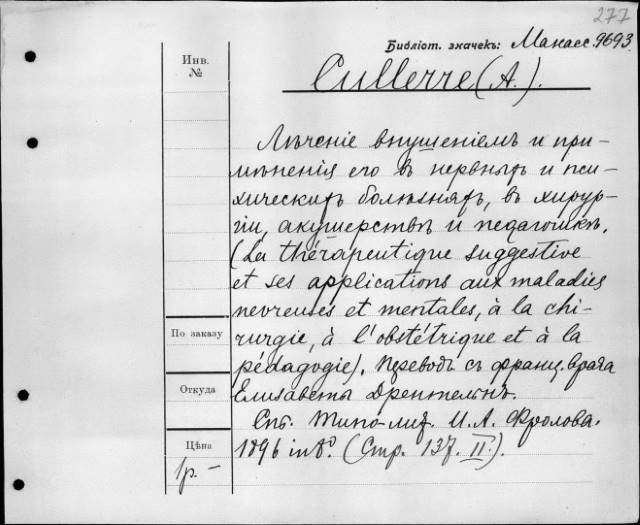 277
Библіот. значекъ: Макасс. 9693.
Инв.
№
Cullerre (A.).
Лѣченіе внушеніемъ и при-
мѣненія его въ нервныхъ и пси-
хическихъ болѣзняхъ, въ хирур-
гіи, акушерствѣ и педагогикѣ.
(La thérapeutique suggestive
et ses applications aux maladies
nevreuses et mentales, à la chi-
rurgie, à l'obstétrique et à la
pédagogie). Переводъ съ франц. врача
Елисаветы Дрентельнъ.
Спб. Типо-лит. И. А. Фролова.
1896 in 8º. (Стр. 137. II.).
По заказу
Откуда
Цѣна
1р. –